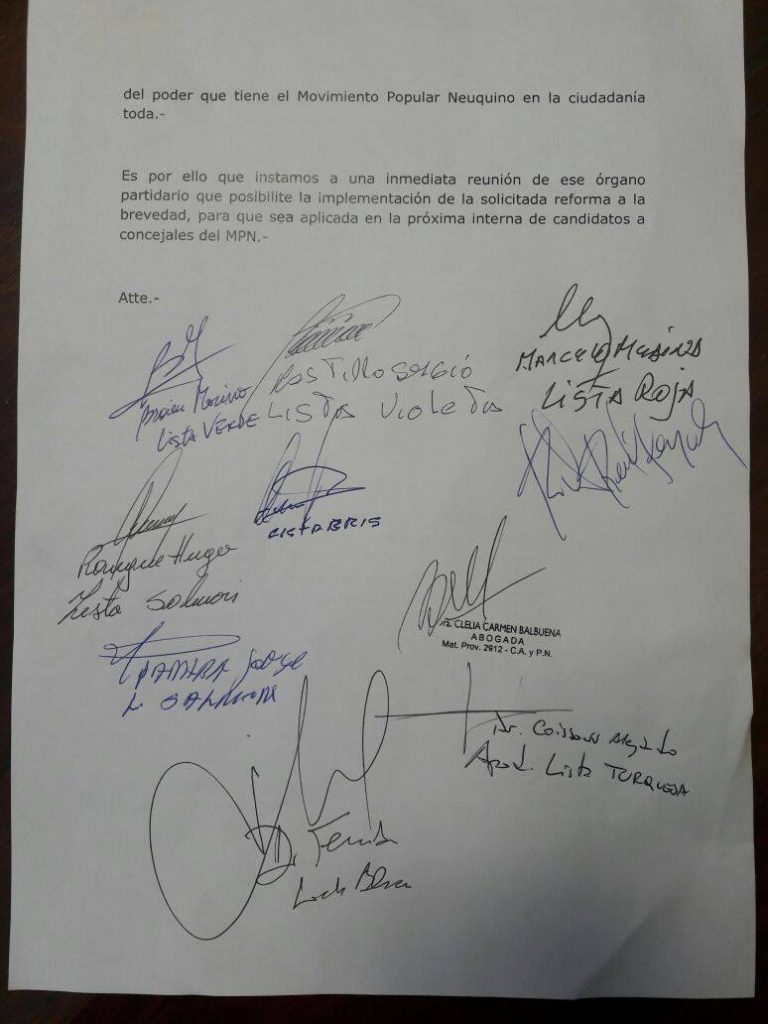 del poder que tiene el Movimiento Popular Neuquino en la ciudadanía
toda.-
Es por ello que instamos a una inmediata reunión de ese órgano
partidario que posibilite la implementación de la solicitada reforma a la
brevedad, para que sea aplicada en la próxima interna de candidatos a
concejales del MPN.-
Atte.-
MARCELO MEDINA
LISTA ROJA
CASTILLO SERGIO
LISTA VIOLETA
LISTA VERDE
Hugo
Lista Salmon
JORGE
L. SALMON
Dra. CLELIA CARMEN BALBUENA
ABOGADA
Mat. Prov. 2912 - C.A. y P.N.
Dr. Coisson
Apod. Lista TURQUESA